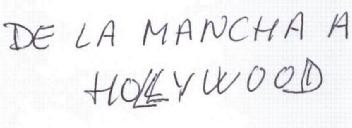 DE LA MANCHA A
HOLLYWOOD